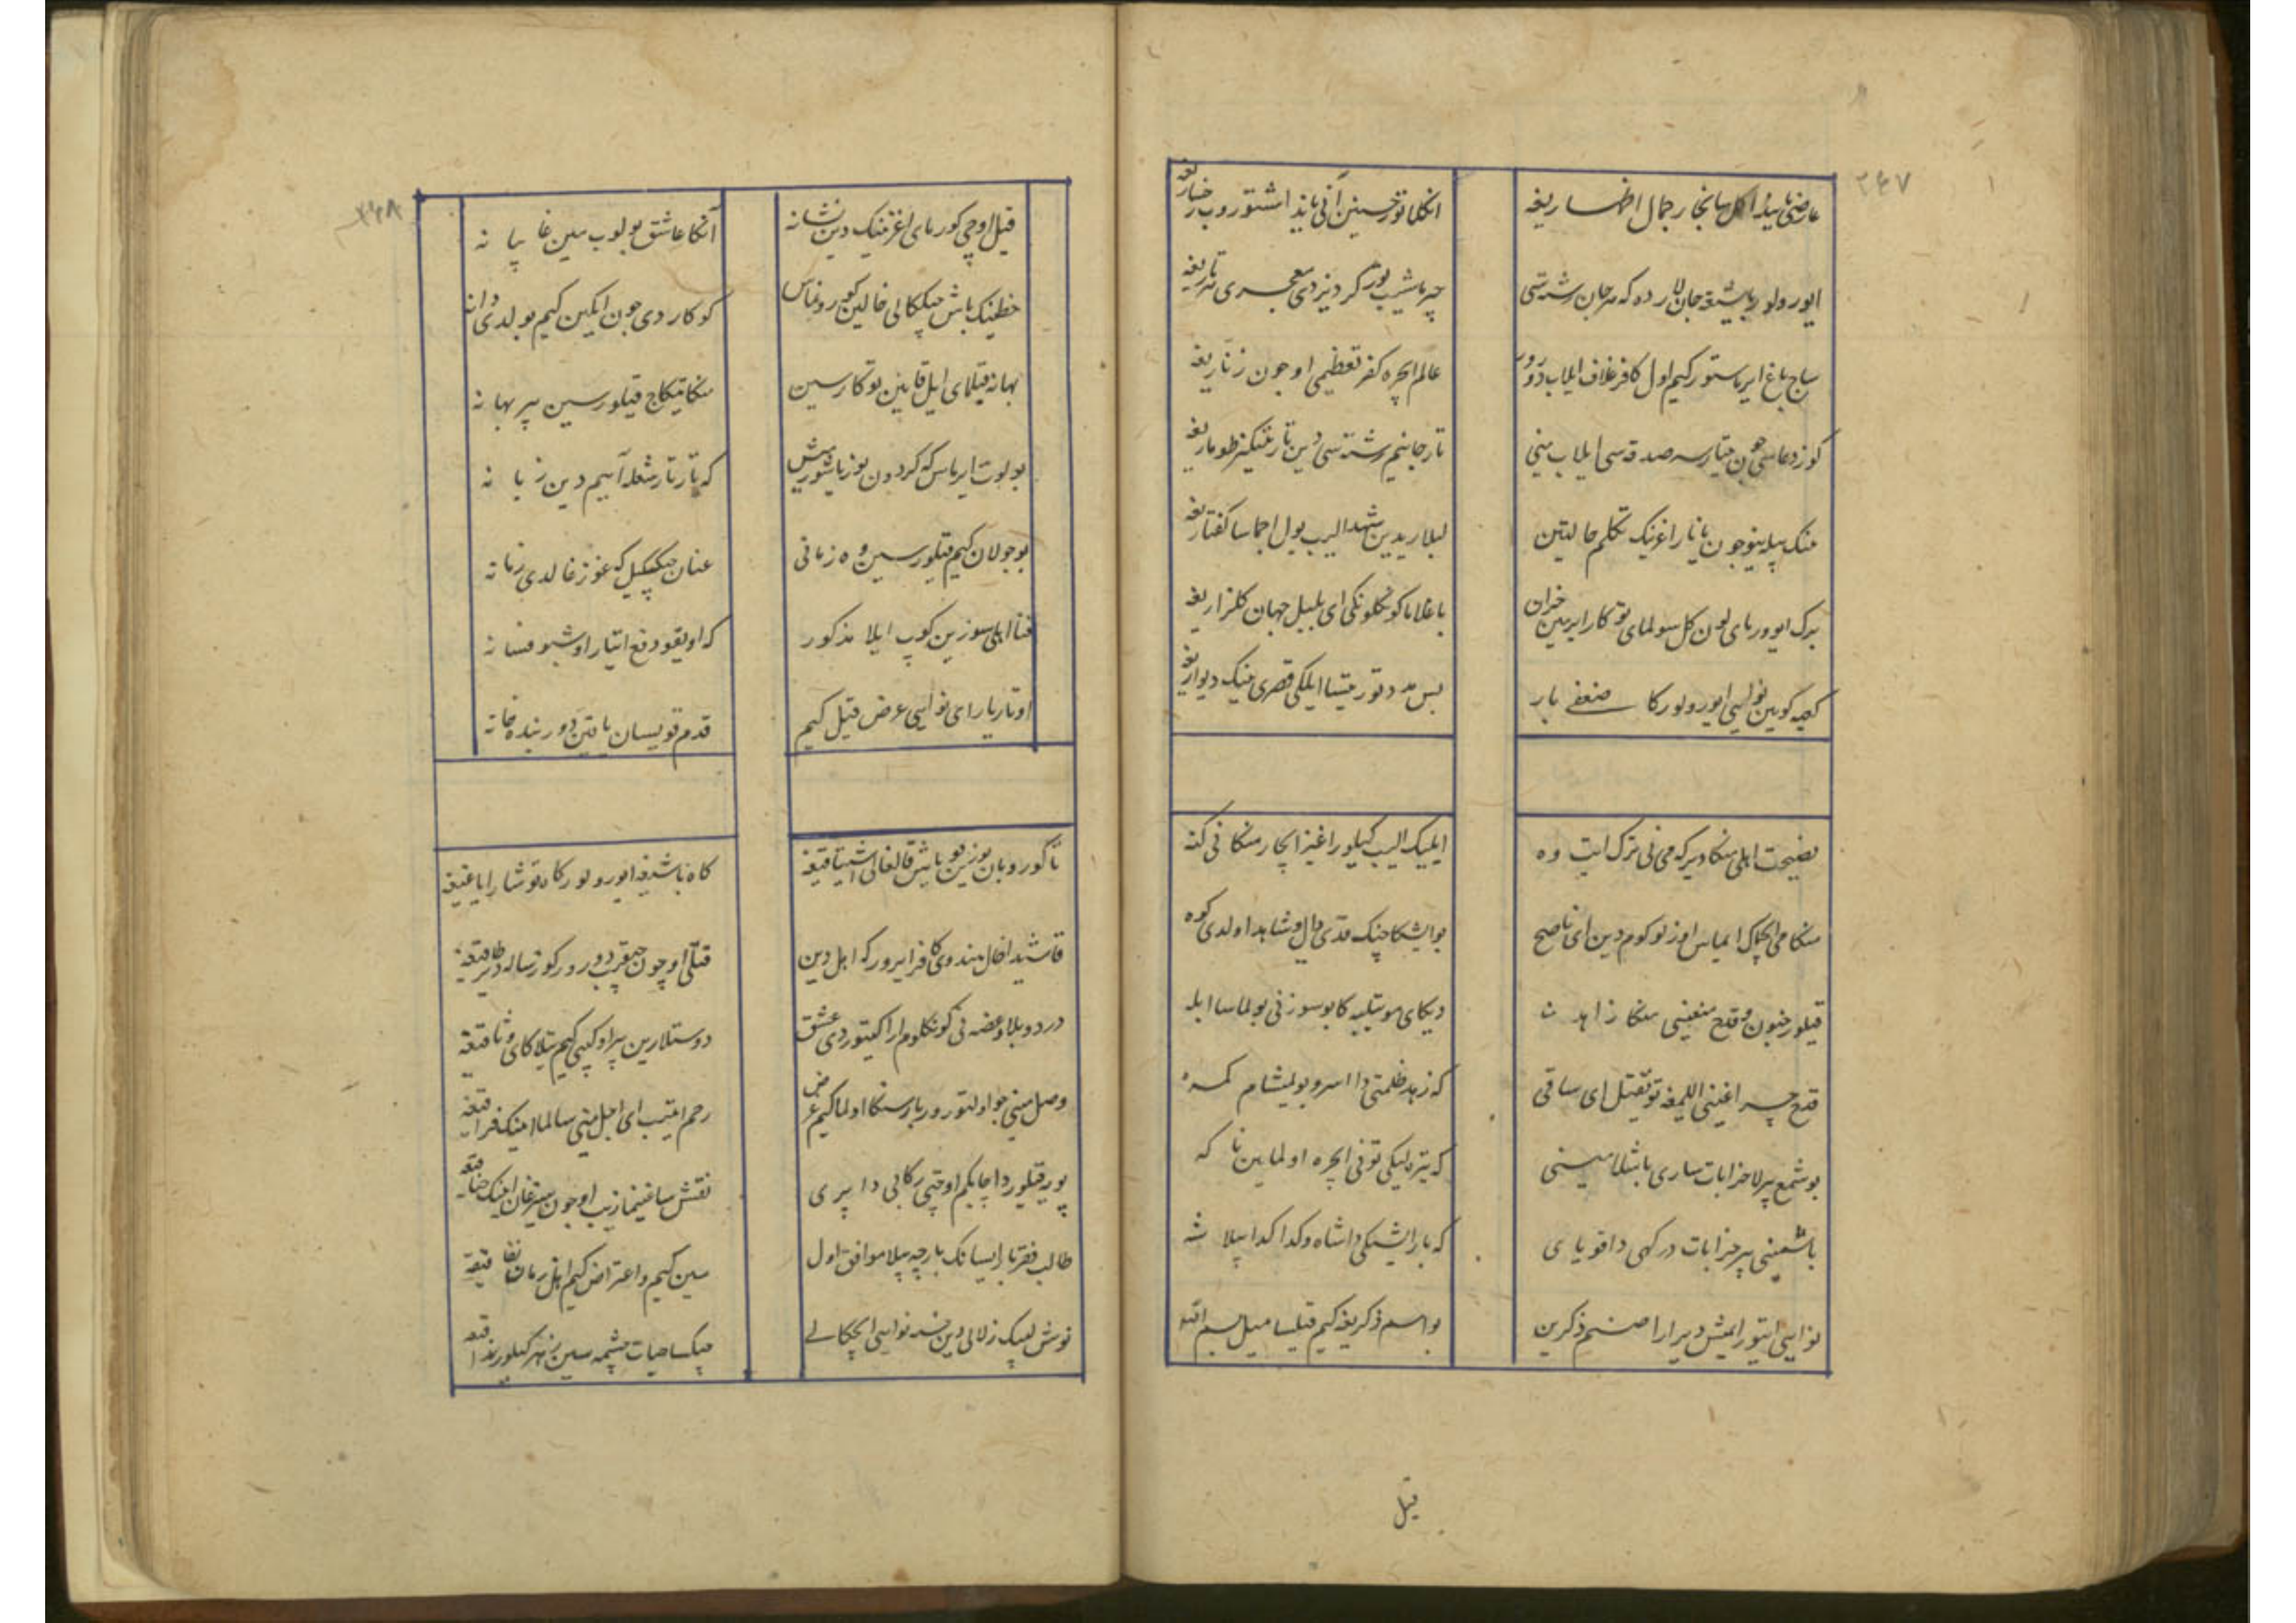 ۲۴۷
عارضی تابیدا گل سانجار جمال اظهاریغه
انگلماتور حسنین آنی باندا اشتوروب رخساریغه
ایورولور باشیغه جان لار ده که مرجان رشته سی
چیرماشیب تور گرد یزدی معجری تاریغه
ساچ باغ ایرماستور کیم اول کافر غلاف ایلاب دورور
عالم ایچره کفر تعظیمی اوچون زناریغه
کوز دعاسی چون چیتارسه صدقه سی ایلاب مینی
تار جانیم رشته سی دین تار تینکیز طوماریغه
لبلاریدین شهد الیب بول اجماسا گفتاریغه
برک ایوورمای لون گل سولمای توکار ایرمین خزان
باغلاما کونگلونکی ای بلبل جهان گلزاریغه
کعبه کویین نوایی ایورولورکا ضعفی بار
بس مدد تور یتسا ایلکی قصری نینک دیواریغه
نصیحت اهلی منکا دیر که می نی ترک ایت وه
ایلیک الیب کیلور اغیز اچار منکا نی کنه
منکا می ایچماک ایماس اوز لوکوم دین ای ناصح
بو ایشکا چنک قدی دال و شاهد اولدی کوه
قیلور جنون و قدح منعینی منکا زاهد
دیکای مو تیلبه کا بو سوزنی بولماسا ابله
قدح چراغینی الیمغه توتقیل ای ساقی
که زهد ظلمتی دا اسرو بولمیشام گمره
بو شمع بیرلا خرابات ساری باشلا مینی
که تیره لیکی تونی ایچره اولمایین ناگه
باشیمنی پیر خرابات درگهی دا قویای
که بار ایشیکی دا شاه و گدا گدا بیلا شه
نوایی ایتور ایمیش دیر ارا صنم ذکرین
بو اسم ذکریغه کیم قیلسا میل بسم الله
قیل
۳۴۸
قیل اوچی کورمای اغزینک دین نشانه
آنکا عاشق بولوب مین غایبانه
خطینک باش چیککالی خالینک کورونماس
کوکاردی چون ایکین کیم بولدی دانه
بهانه قیلمای ایل قانین توکارسین
منکا یتکاچ قیلورسین بیر بهانه
بولوت ایرماس که گردون یوزی یاشورمیش
که تارتار شعله آهیم دین زبانه
بو جولان کیم قیلورسین وه زمانی
عنان چیککیل که غوغا زالدی زمانه
فنا اهلی سوزین کوپ ایلا مذکور
که اویقو دفع ایتار اوشبو فسانه
اوتار یارای نوایی عرض قیل کیم
قدم قویسان یاقین دور بنده خانه
تا گوروبان یوزین قویاش قالغالی اشتیاقیغه
گاه باشیغه ایورولور گاه توشار ایاغیغه
قاشیدا خال هندوی کافر ایرور که اهل دین
قتلی اوچون چیقریب دورور کوز ساله دیر طاقیغه
درد و بلا و غصه نی کونگلوم ارا کیتوردی عشق
دوستلارین بیراو کبی کیم تیلاکای وثاقیغه
وصل مینی چو اولتورور بار سنکا اولماکیم غرض
رحم ایتیب ای اجل مینی سالما انینک فراقیغه
پوی قیلور دا چابکم اوچتی رکابی دا پری
نقش ساغینما زیب اوچون سیزغان انینک جناقیغه
طالب فقر بار ایسانک بارچه بیلا موافق اول
سین کیم و اعتراض کیم اهل زمان نفاقیغه
نوش لبینک زلالی دین خسته نوایی ایچکالی
چیکسا حیات چشمه سین زهر کیلور مذاقیغه